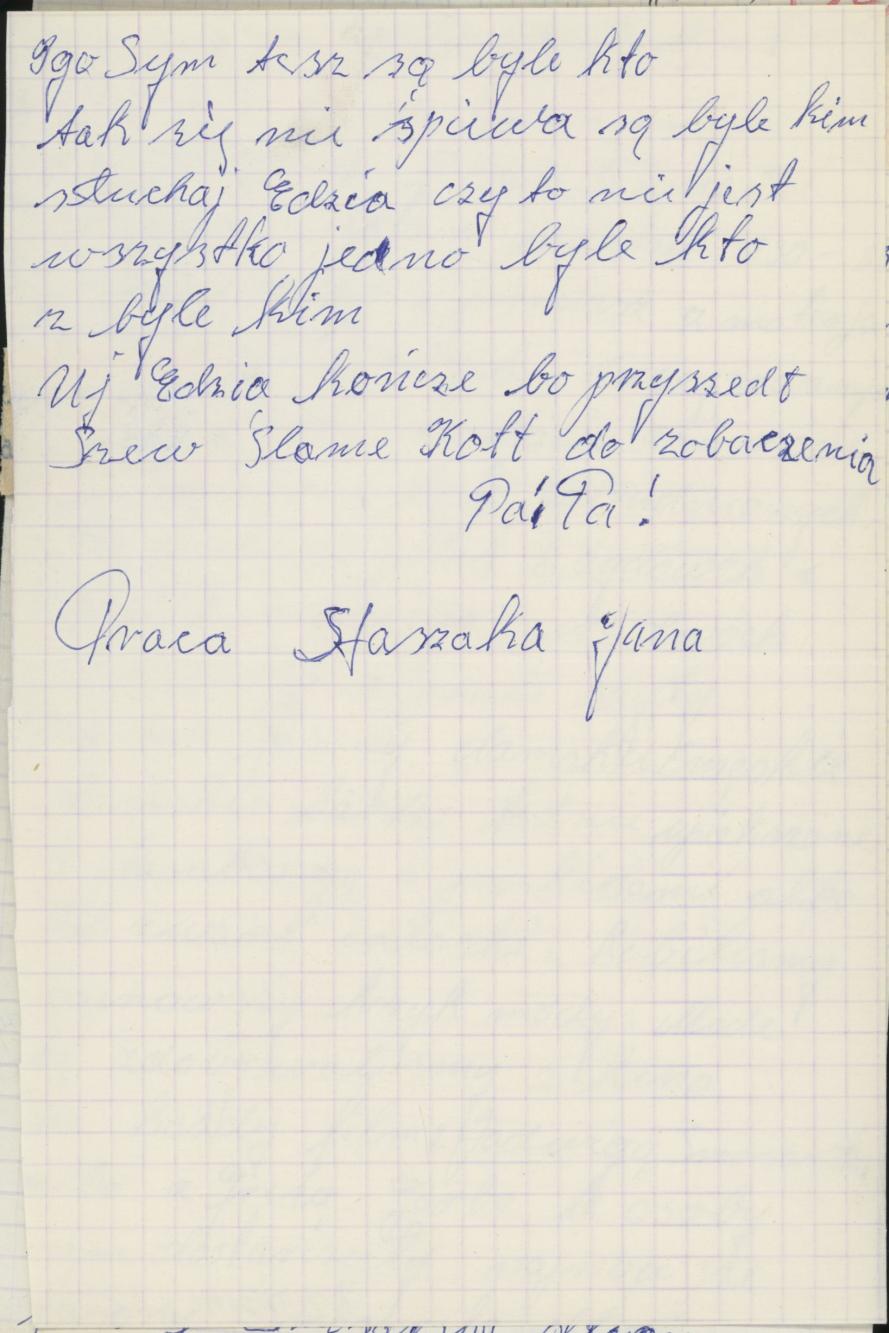 Igo Sym tesz są byle kto
tak się nie śpiewa są byle kim
słuchaj Edzia czy to nie jest
wszystko jedno byle kto
z byle kim
Uj Edzia kończe bo przyszedł
Szew Ślome Kott do zobaczenia
Pa! Pa!
Praca Staszaka Jana